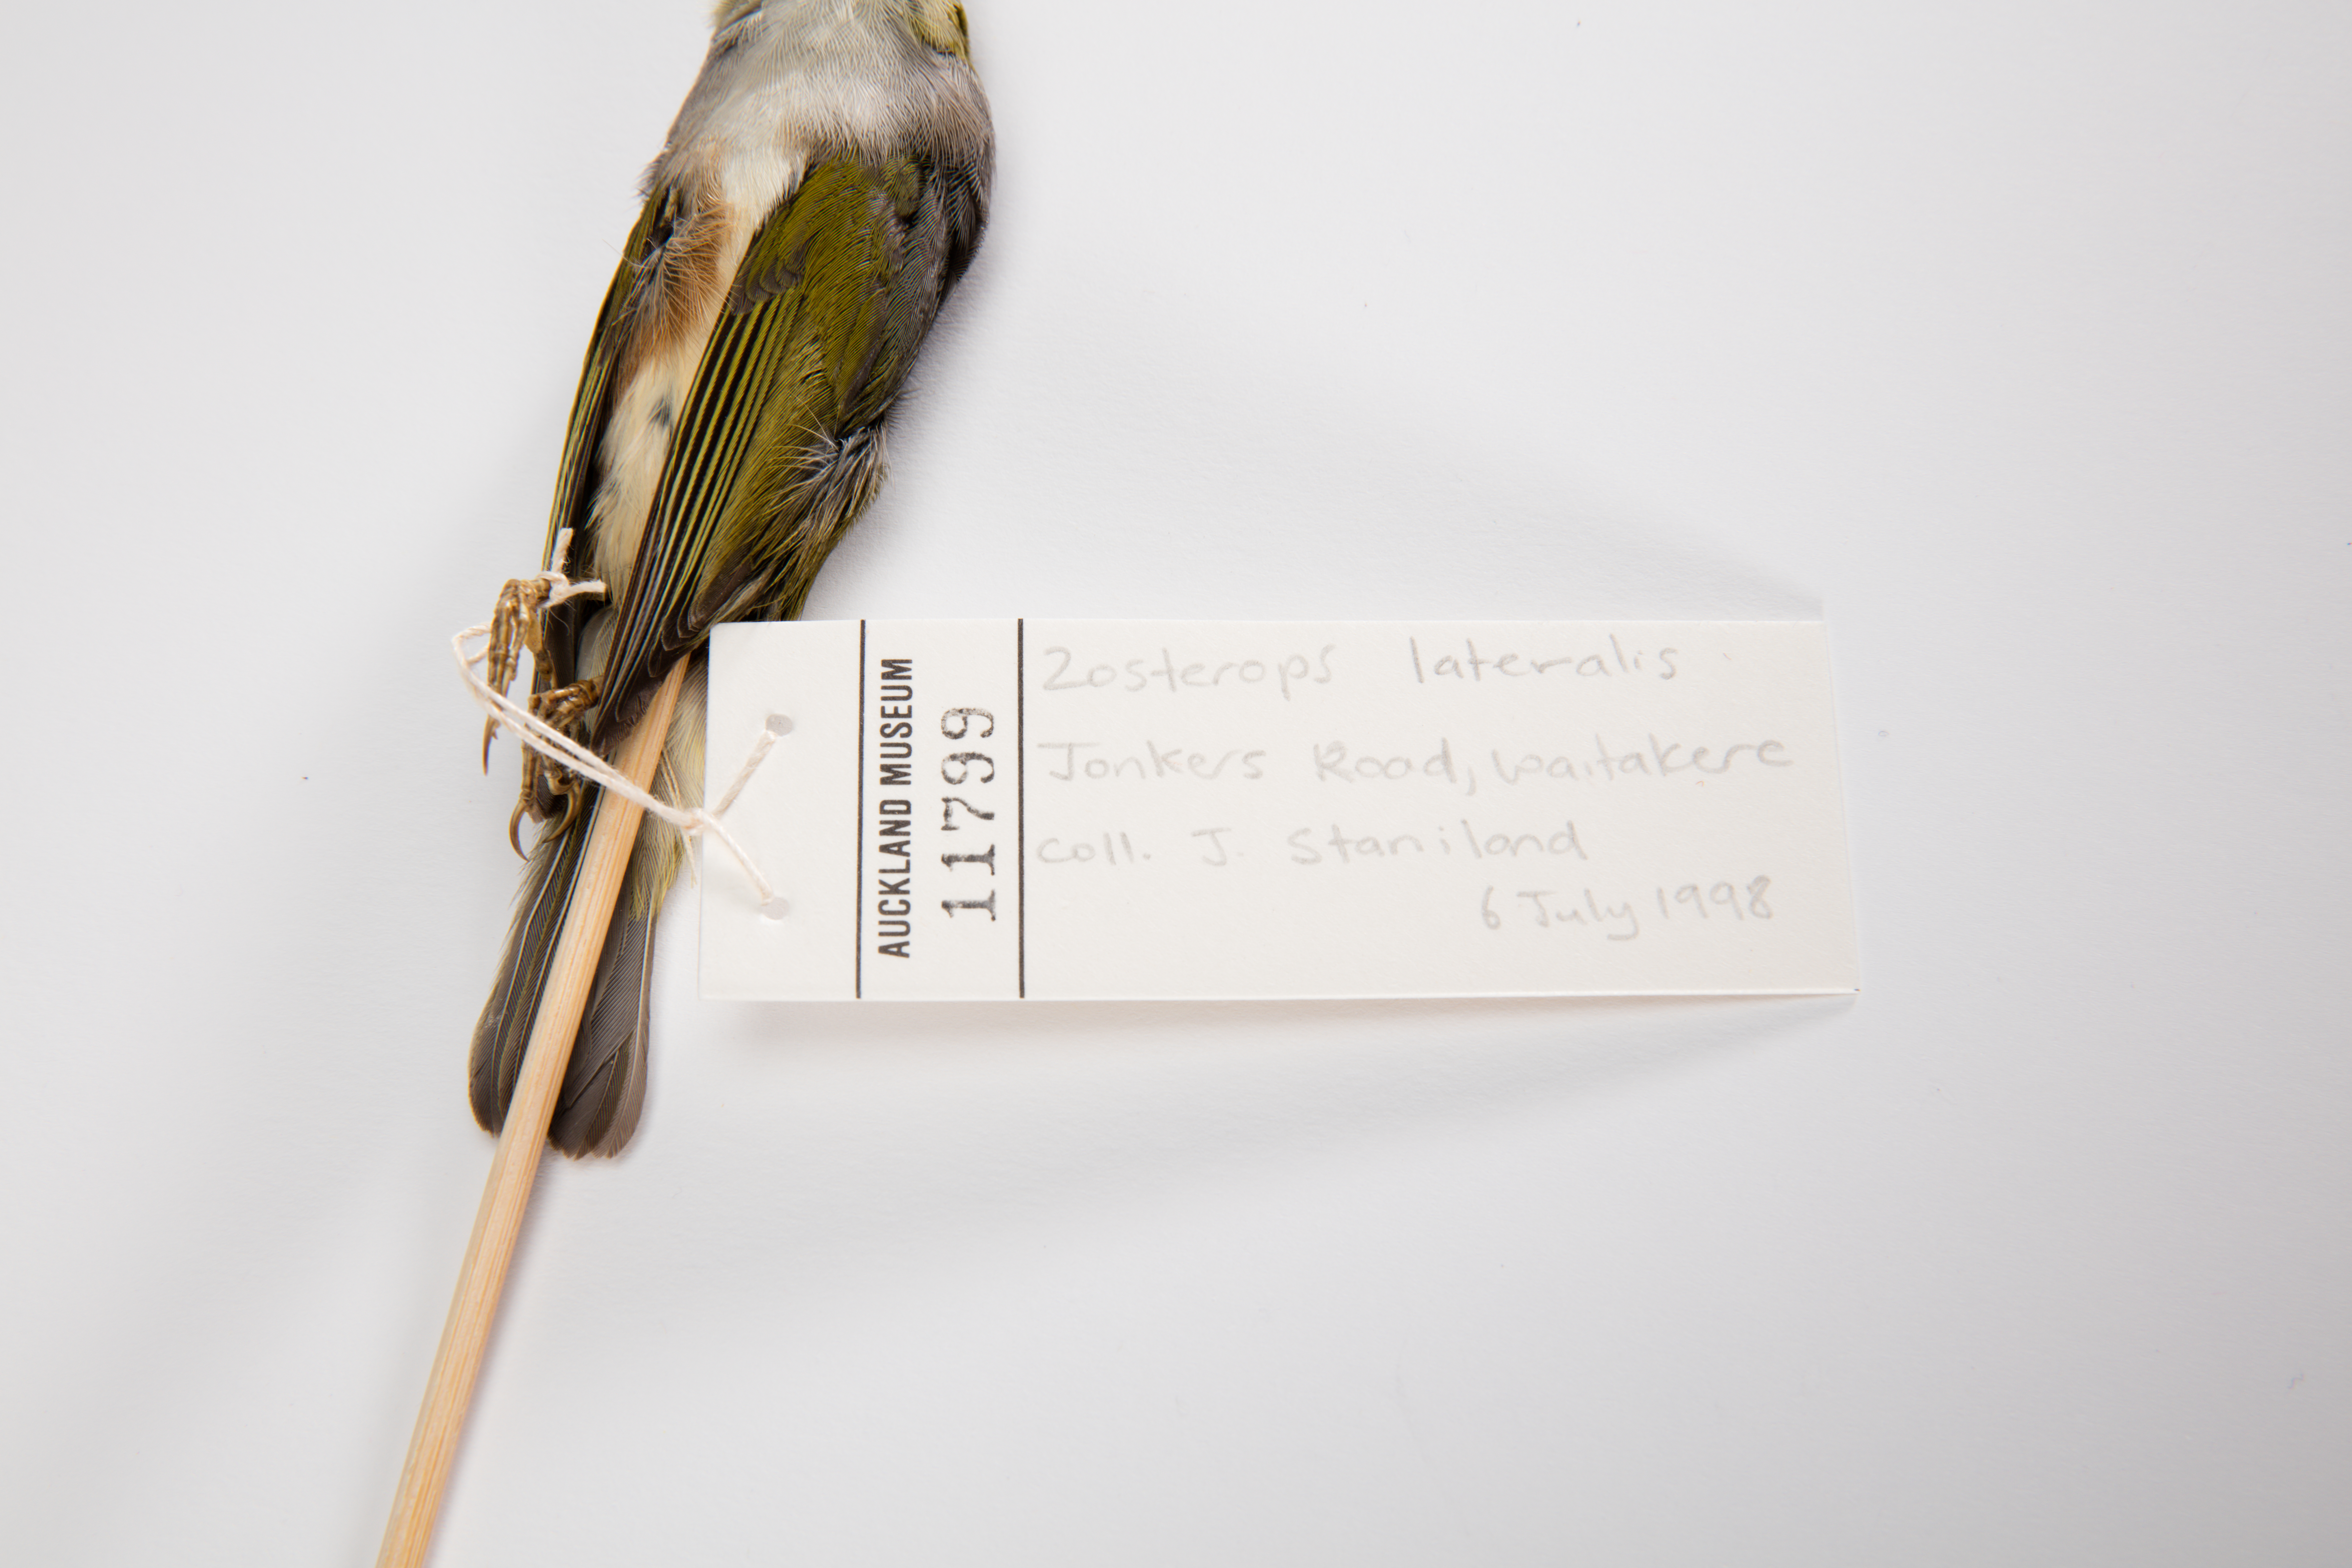 AUCKLAND MUSEUM
11799
Zosterops lateralis
Jonkers Road, Waitakere
coll. J. Staniland
6 July 1998